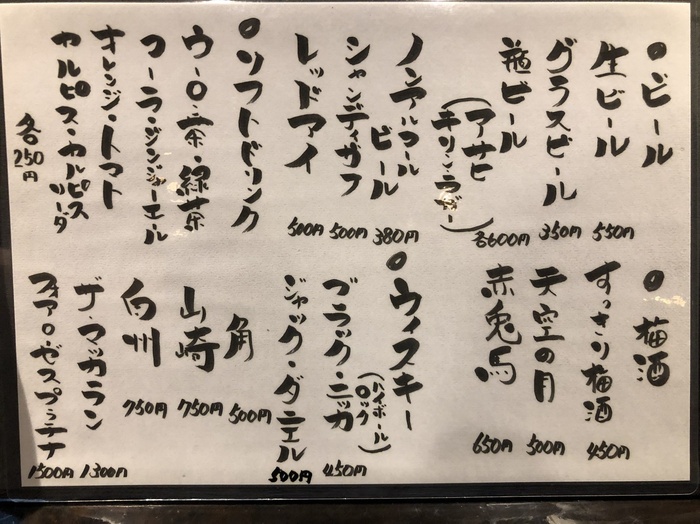 ○ビール
生ビール 550円
グラスビール 350円
瓶ビール
(アサヒ
キリンラガー) 各600円
ノンアルコール
ビール 380円
シャンディガフ 500円
レッドアイ 500円
○ソフトドリンク
ウーロン茶・緑茶
コーラ・ジンジャーエール
オレンジ・トマト
カルピス・カルピス
ソーダ
各250円
○梅酒
すっきり梅酒 450円
天空の月 500円
赤兎馬 650円
○ウィスキー
(ハイボール
ロック)
ブラック・ニッカ 450円
ジャック・ダニエル 500円
角 500円
山崎 750円
白州 750円
ザ・マッカラン 1300円
フォアローゼスプラチナ 1500円